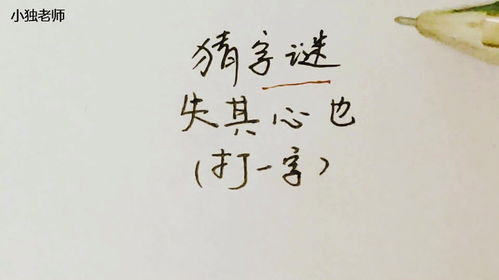 小独老师
猜字谜
失其心也
(打一字)